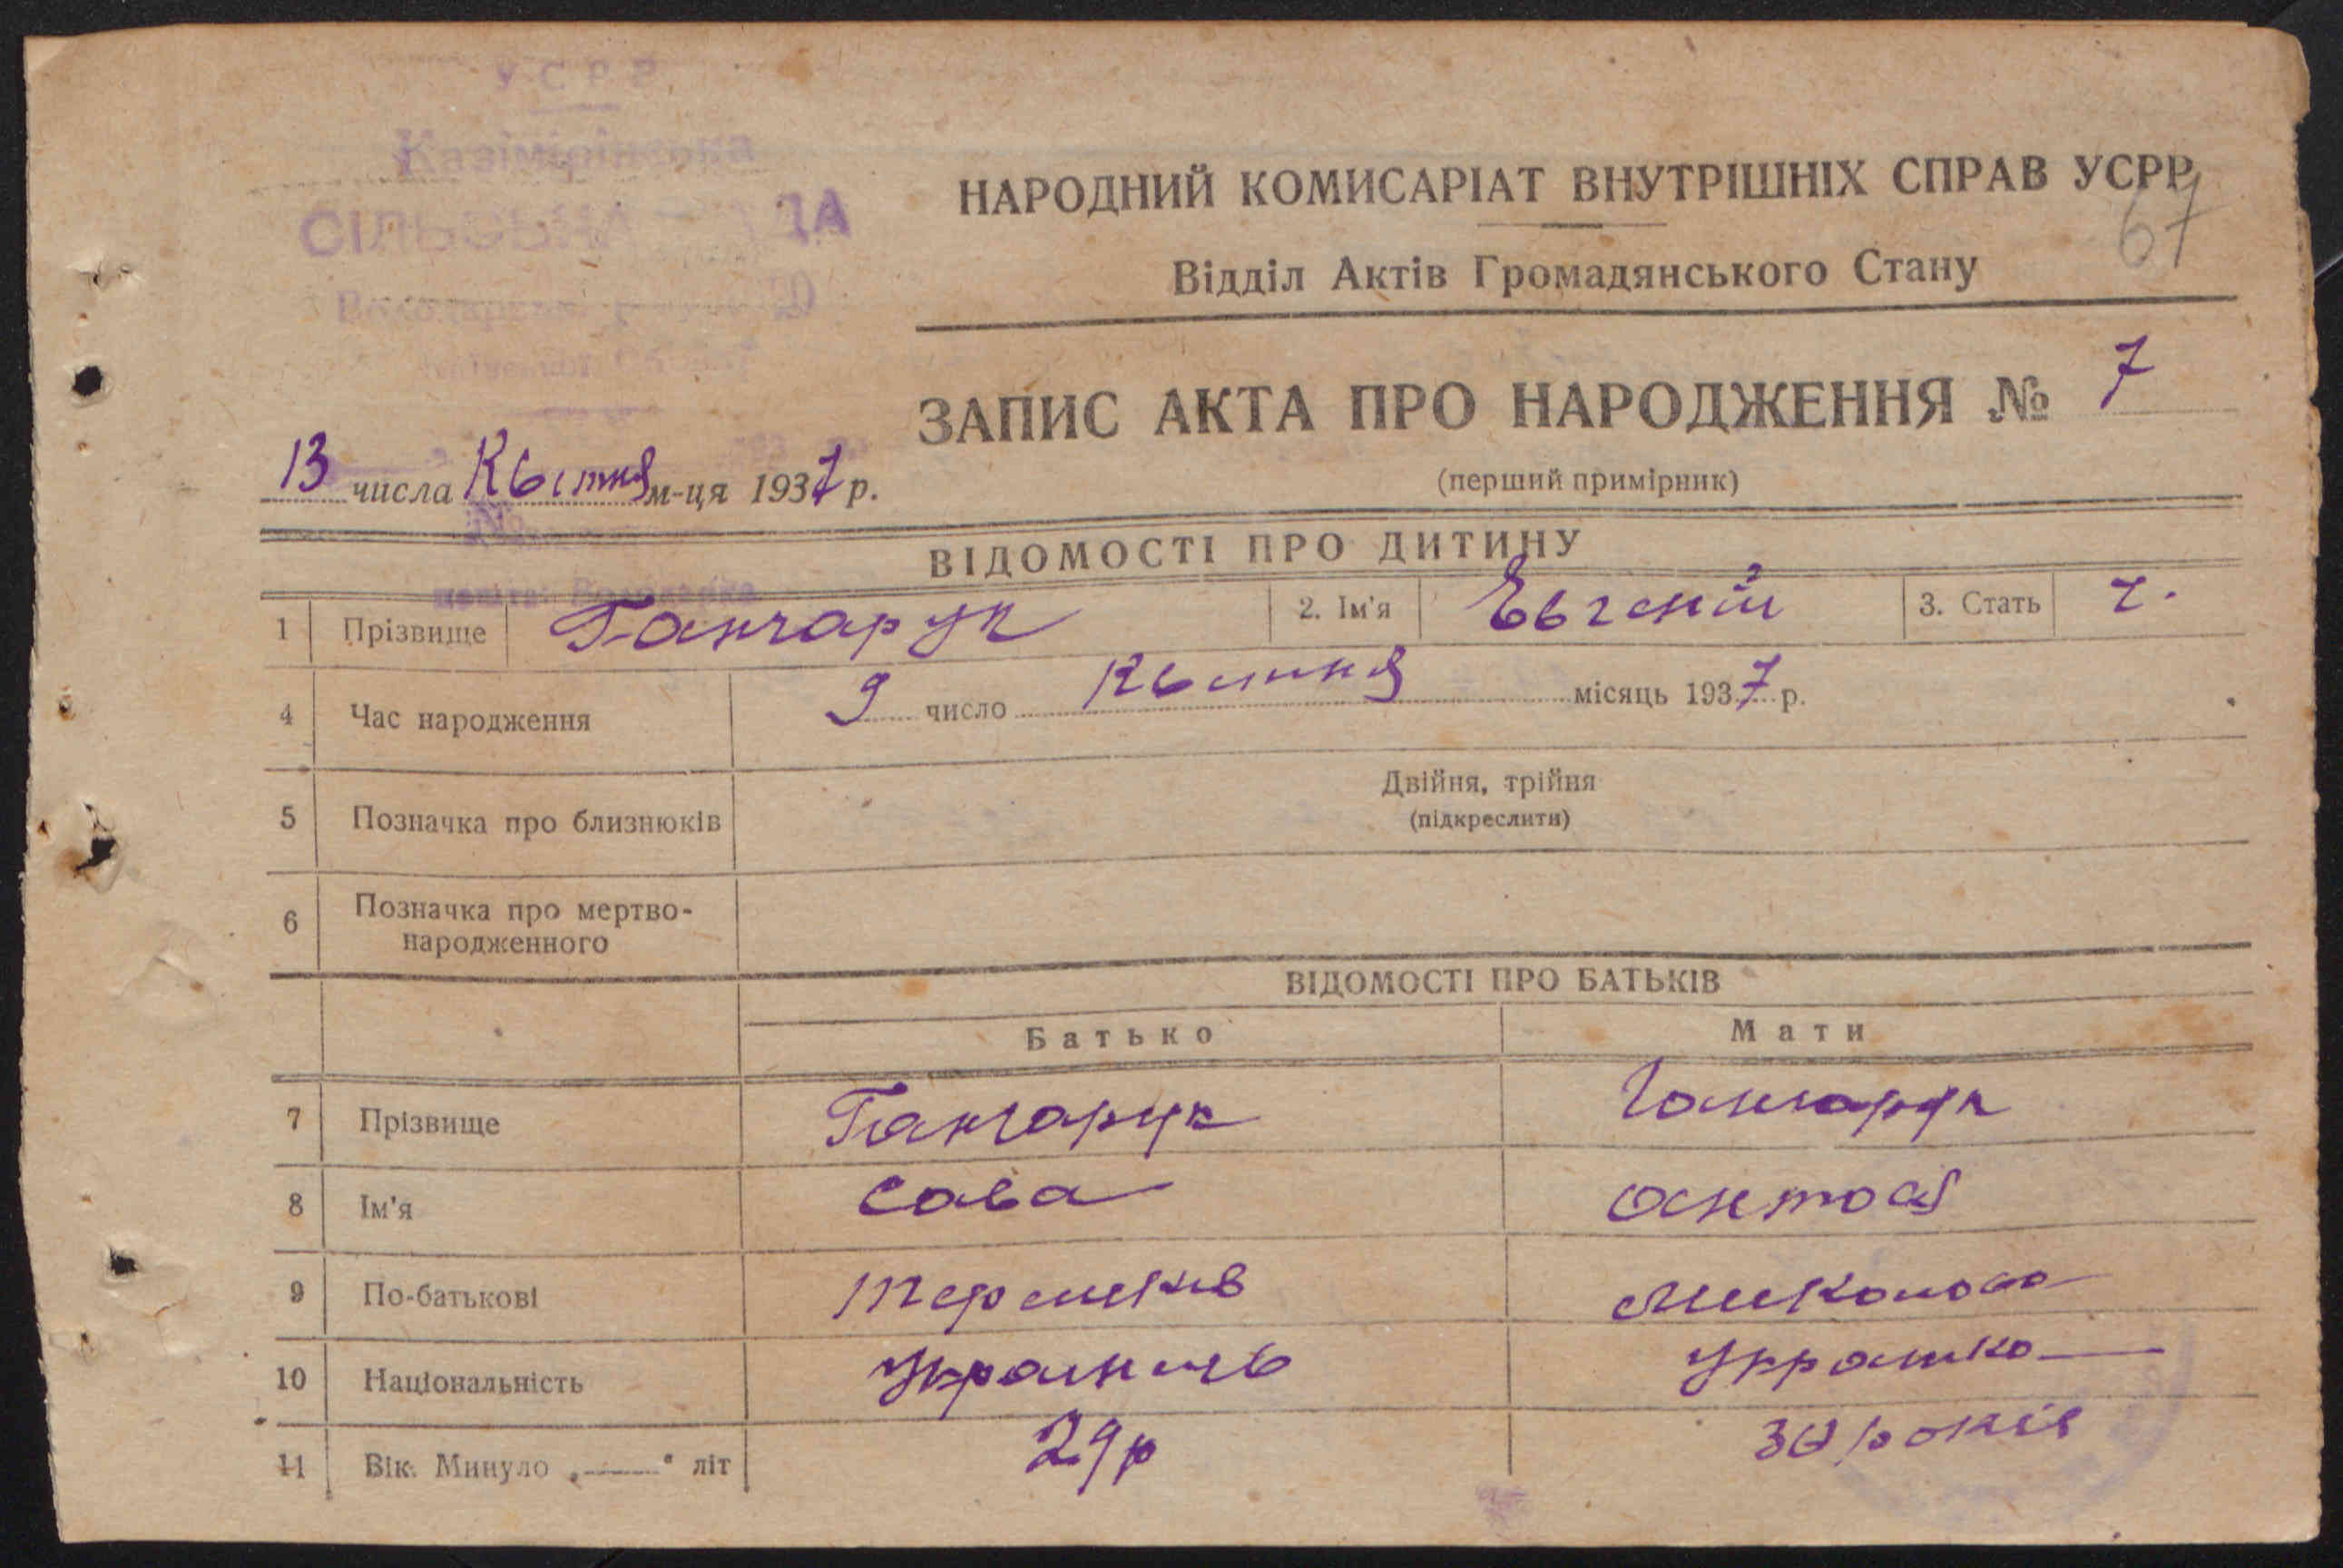 У.С.Р.Р.
Казімірівська
СІЛЬСЬКА РАДА
Володарського району
Київської Області
НАРОДНИЙ КОМИСАРІАТ ВНУТРІШНІХ СПРАВ УСРР
67
Відділ Актів Громадянського Стану
ЗАПИС АКТА ПРО НАРОДЖЕННЯ № 7
(перший примірник)
13 числа Квітня м-ця 1937 р.
№
ВІДОМОСТІ ПРО ДИТИНУ
пошта Володарка
1 Прізвище Ганчарук 2. Ім'я Евгений 3. Стать ч.
4 Час народження 9 число Квитня місяць 1937 р.
5 Позначка про близнюків Двійня, трійня
(підкреслити)
6 Позначка про мертво-
народженного
ВІДОМОСТІ ПРО БАТЬКІВ
Батько Мати
7 Прізвище Ганчарук Ганчарук
8 Ім'я Сава
9 По-батькові
10 Національність Украинець Украинка
11 Вік. Минуло „—“ літ 29р 30 років